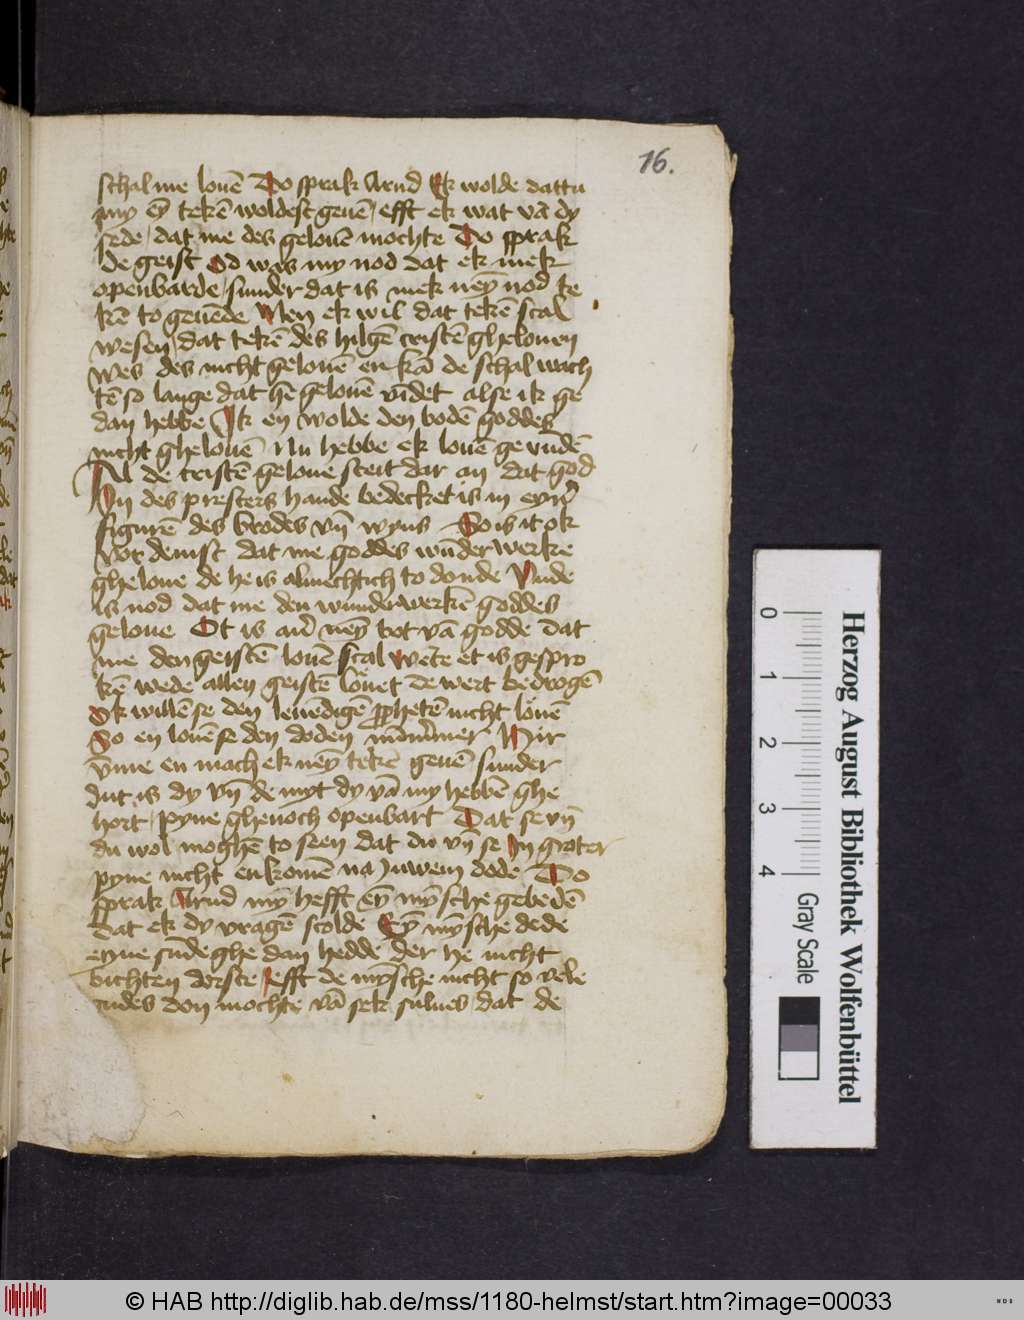 16.
schal me louē Do sprak Arnd Ek wolde dattu
my eȳ tekē woldest geuē / efft ek wat vā dy
sede / dat me des gelouē mochte Do sprak
de geist Od was my nod dat ek mek
openbarde / sunder dat is mek neȳ nod te
kē to geuēde Men ek wil dat tekē scal
wesen / dat tekē des hilgē cristē ghelouen
wes des nicht gelouē en kā de schal wach
tē so lange dat hē gelouē vīdet alse ik ge
dan hebbe Ik en wolde den bodē goddes
nicht ghelouē Nu hebbe ek louē ge vūdē
Al de cristē geloue steit dar an dat god
In des presters hande bedecket is in eyner
figurē des brodes vn̄ wyns So is it ok
vor denist dat me goddes wūder werke
gheloue de he is almechtich to donde Vnde
is nod dat me den wunderwerkē goddes
geloue Ot is auer neȳ bot vā godde dat
me den geistē louē scal Wēte et is gespro
kē wede allen geistē louet de wert bedrogē
Ok willē se den leuēdigē prophetē nicht louē
So en louē se den doden nūmer Hir
vme en mach ek neȳ tekē geuē sunder
Jut is dy vn̄ de myt dy vā my hebbē ghe
hort / pyne ghenoch openbart Dat se vn̄
du wol moghē to seen dat du vn̄ se In groter
pyne nicht enkomē na Juwem dode Do
sprak Arnd my hefft eȳ mȳsche gebedē
dat ek dy vragē scolde Eȳ mȳsche dede
eyne sūde ghe dan hedde der he nicht
bichten dorste Efft de mȳsche nicht so vele
gudes don mochte vā sek sulues dat de
Herzog August Bibliothek Wolfenbüttel
0 1 2 3 4
Gray Scale
© HAB http://diglib.hab.de/mss/1180-helmst/start.htm?image=00033